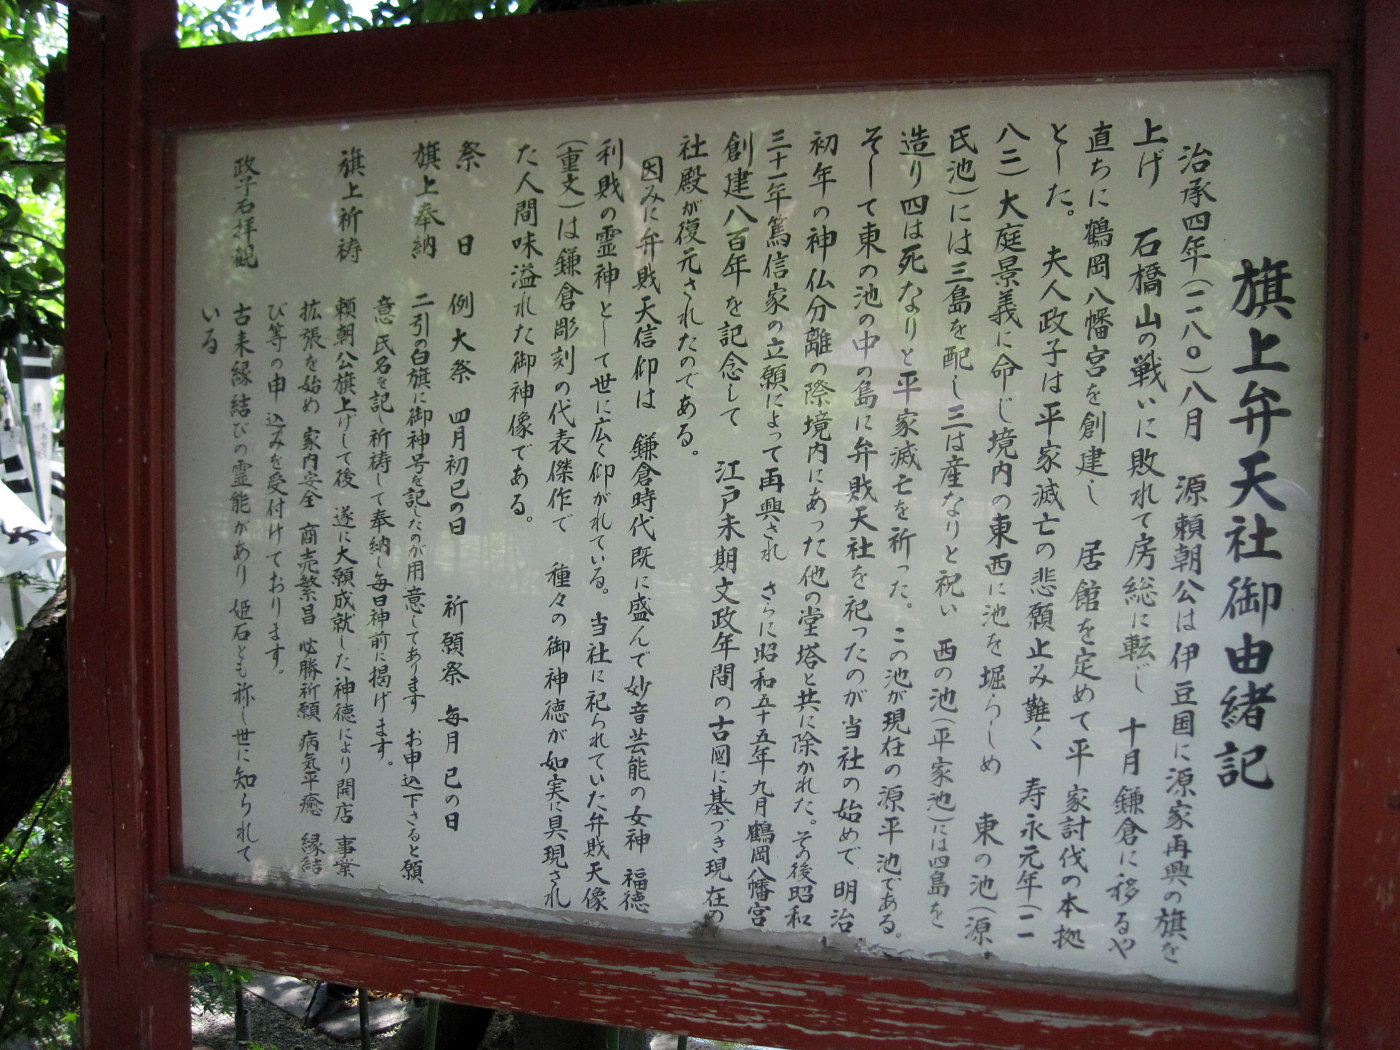 旗上弁天社御由緒記
治承四年(一一八〇)八月　源頼朝公は伊豆国に源家再興の旗を
上げ　石橋山の戦いに敗れて房総に転じ　十月鎌倉に移るや
直ちに鶴岡八幡宮を創建し　居館を定めて平家討伐の本拠
とした。　夫人政子は平家滅亡の悲願止み難く　寿永元年(一一
八二)大庭景義に命じ境内の東西に池を堀らしめ　東の池(源
氏池)には三島を配し三は産なりと祝い　西の池(平家池)には四島を
造り四は死なりと平家滅亡を祈った。この池が現在の源平池である。
そして東の池の中の島に弁財天社を祀ったのが当社の始めで　明治
初年の神仏分離の際境内にあった他の堂塔と共に除かれた。その後昭和
三十一年篤信家の立願によって再興され　さらに昭和五十五年九月鶴岡八幡宮
創建八百年を記念して　江戸末期文政年間の古図に基づき現在の
社殿が復元されたのである。
因みに弁財天信仰は　鎌倉時代既に盛んで妙音芸能の女神　福徳
利財の霊神として世に広く仰がれている。当社に祀られていた弁財天像
(重文)は鎌倉彫刻の代表傑作で　種々の御神徳が如実に具現され
た人間味溢れた御神像である。
祭　日　例大祭　四月初巳の日　祈願祭　毎月巳の日
旗上奉納　二引の白旗に御神号を記したのが用意してあります　お申込下さると願
意氏名を記し祈祷して奉納し毎日神前に揚げます。
旗上祈祷　頼朝公旗上げして後　遂に大願成就した神徳により開店　事業
拡張を始め　家内安全　商売繁昌　必勝祈願　病気平癒　縁結
び等の申込みを受付けております。
政子石拝観　古来縁結びの霊能があり　姫石とも称し世に知られて
いる